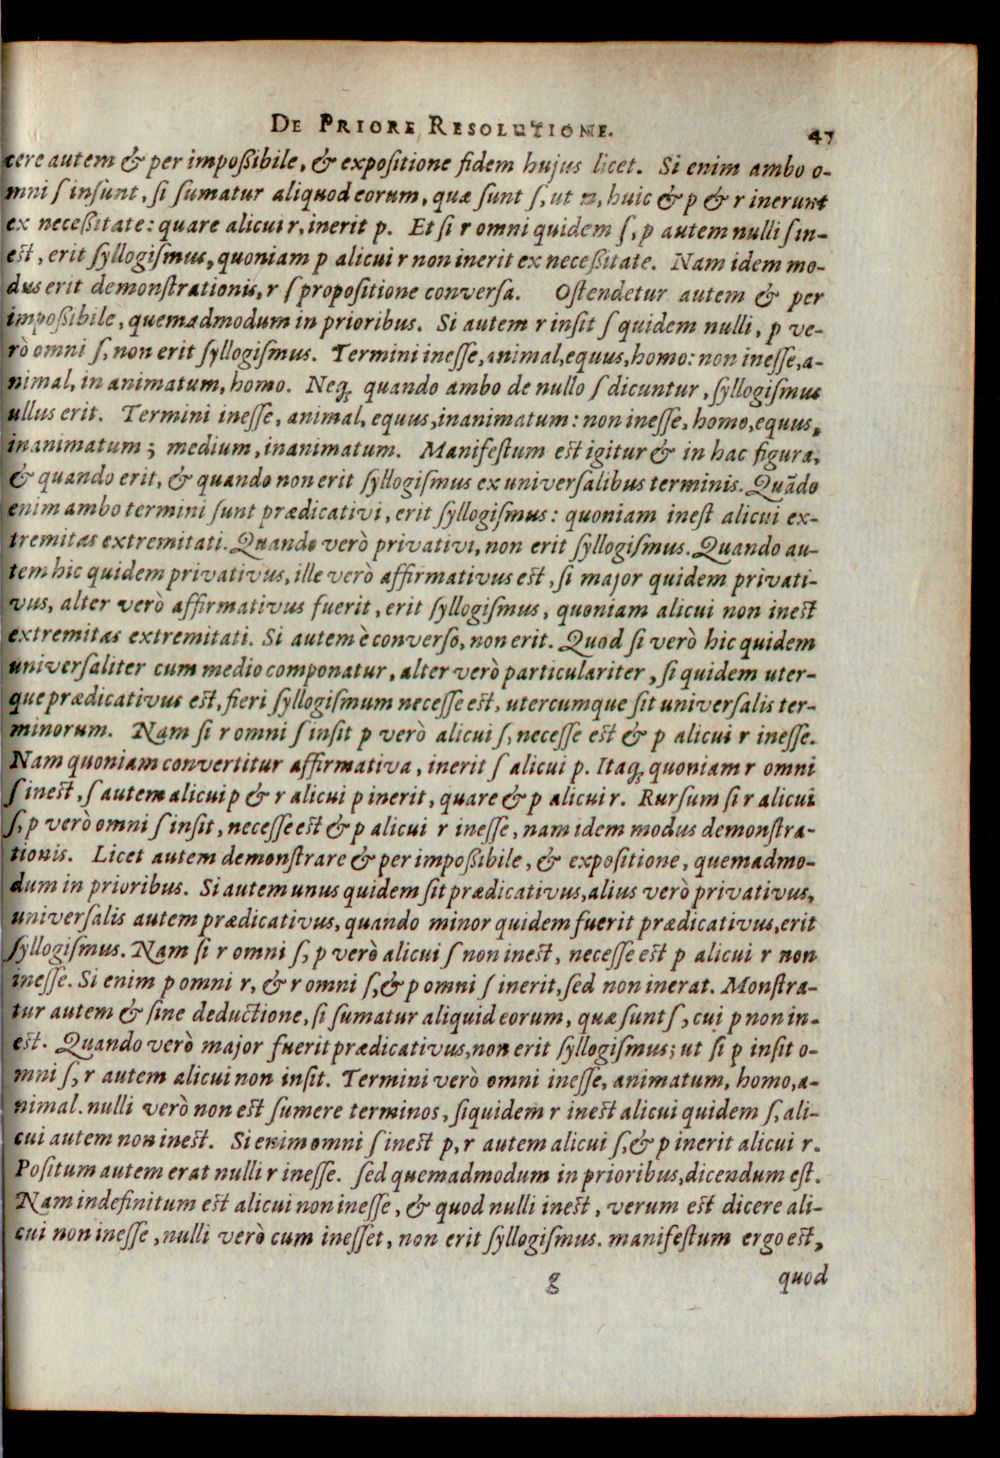 De Priore Resolutione. 47
cere autem & per impoßibile, & expositione fidem hujus licet. Si enim ambo o-
mni ſ insunt, si ſumatur aliquod eorum, quæ ſunt ſ, ut n, huic & p & r inerunt
ex neceßitate: quare alicui r, inerit p. Et si r omni quidem ſ, p autem nulli ſ in-
est, erit ſyllogiſmus, quoniam p alicui r non inerit ex neceßitate. Nam idem mo-
dus erit demonſtrationis, r ſ propoſitione converſa. Oſtendetur autem & per
impoßibile, quemadmodum in prioribus. Si autem r inſit ſ quidem nulli, p ve-
rò omni ſ, non erit ſyllogiſmus. Termini ineſſe, animal, equus, homo: non ineſſe, a-
nimal, in animatum, homo. Neq; quando ambo de nullo ſ dicuntur, ſyllogiſmus
ullus erit. Termini ineſſe, animal, equus, inanimatum: non ineſſe, homo, equus,
inanimatum; medium, inanimatum. Manifeſtum est igitur & in hac figura,
& quando erit, & quando non erit ſyllogiſmus ex univerſalibus terminis. Quãdo
enim ambo termini ſunt prædicativi, erit ſyllogiſmus: quoniam ineſt alicui ex-
tremitas extremitati. Quando verò privativi, non erit ſyllogiſmus. Quando au-
tem hic quidem privativus, ille verò affirmativus est, ſi major quidem privati-
vus, alter verò affirmativus fuerit, erit ſyllogiſmus, quoniam alicui non inest
extremitas extremitati. Si autem è converſo, non erit. Quod ſi verò hic quidem
univerſaliter cum medio componatur, alter verò particulariter, ſi quidem uter-
que prædicativus est, fieri ſyllogiſmum neceſſe est, utercumque ſit univerſalis ter-
minorum. Nam ſi r omni ſ inſit p verò alicui ſ, neceſſe est & p alicui r ineſſe.
Nam quoniam convertitur affirmativa, inerit ſ alicui p. Itaq; quoniam r omni
ſ inest, ſ autem alicui p & r alicui p inerit, quare & p alicui r. Rurſum ſi r alicui
ſ, p verò omni ſ inſit, neceſſe est & p alicui r ineſſe, nam idem modus demonſtra-
tionis. Licet autem demonſtrare & per impoßibile, & expoſitione, quemadmo-
dum in prioribus. Si autem unus quidem ſit prædicativus, alius verò privativus,
univerſalis autem prædicativus, quando minor quidem fuerit prædicativus, erit
ſyllogiſmus. Nam ſi r omni ſ, p verò alicui ſ non inest, neceſſe est p alicui r non
ineſſe. Si enim p omni r, & r omni ſ, & p omni ſ inerit, ſed non inerat. Monſtra-
tur autem & ſine deductione, ſi ſumatur aliquid eorum, quæ ſunt ſ, cui p non in-
est. Quando verò major fuerit prædicativus, non erit ſyllogiſmus; ut ſi p inſit o-
mni ſ, r autem alicui non inſit. Termini verò omni ineſſe, animatum, homo, a-
nimal. nulli verò non est ſumere terminos, ſiquidem r inest alicui quidem ſ, ali-
cui autem non inest. Si enim omni ſ inest p, r autem alicui ſ, & p inerit alicui r.
Poſitum autem erat nulli r ineſſe. ſed quemadmodum in prioribus, dicendum eſt.
Nam indefinitum est alicui non ineſſe, & quod nulli inest, verum est dicere ali-
cui non ineſſe, nulli verò cum ineſſet, non erit ſyllogiſmus. manifeſtum ergo est,
g quod